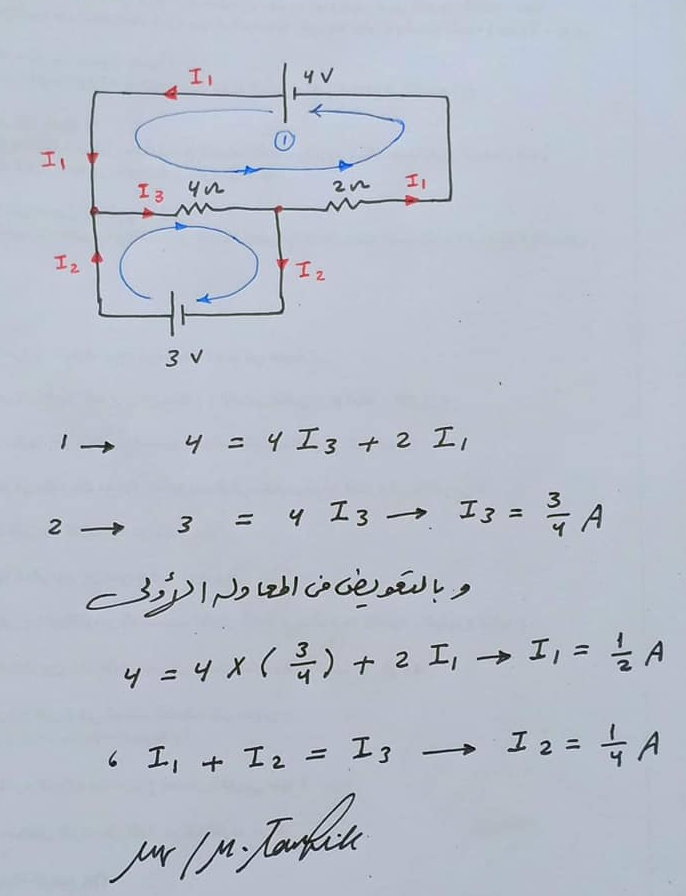 I₁ 4V
①
I₁
I₃ 4Ω 2Ω I₁
I₂ I₂
3 V
1 → 4 = 4 I₃ + 2 I₁
2 → 3 = 4 I₃ → I₃ = 3/4 A
و بالتعويض فى المعادله الأولى
4 = 4 × (3/4) + 2 I₁ → I₁ = 1/2 A
، I₁ + I₂ = I₃ → I₂ = 1/4 A
Mr / M. Tawfik